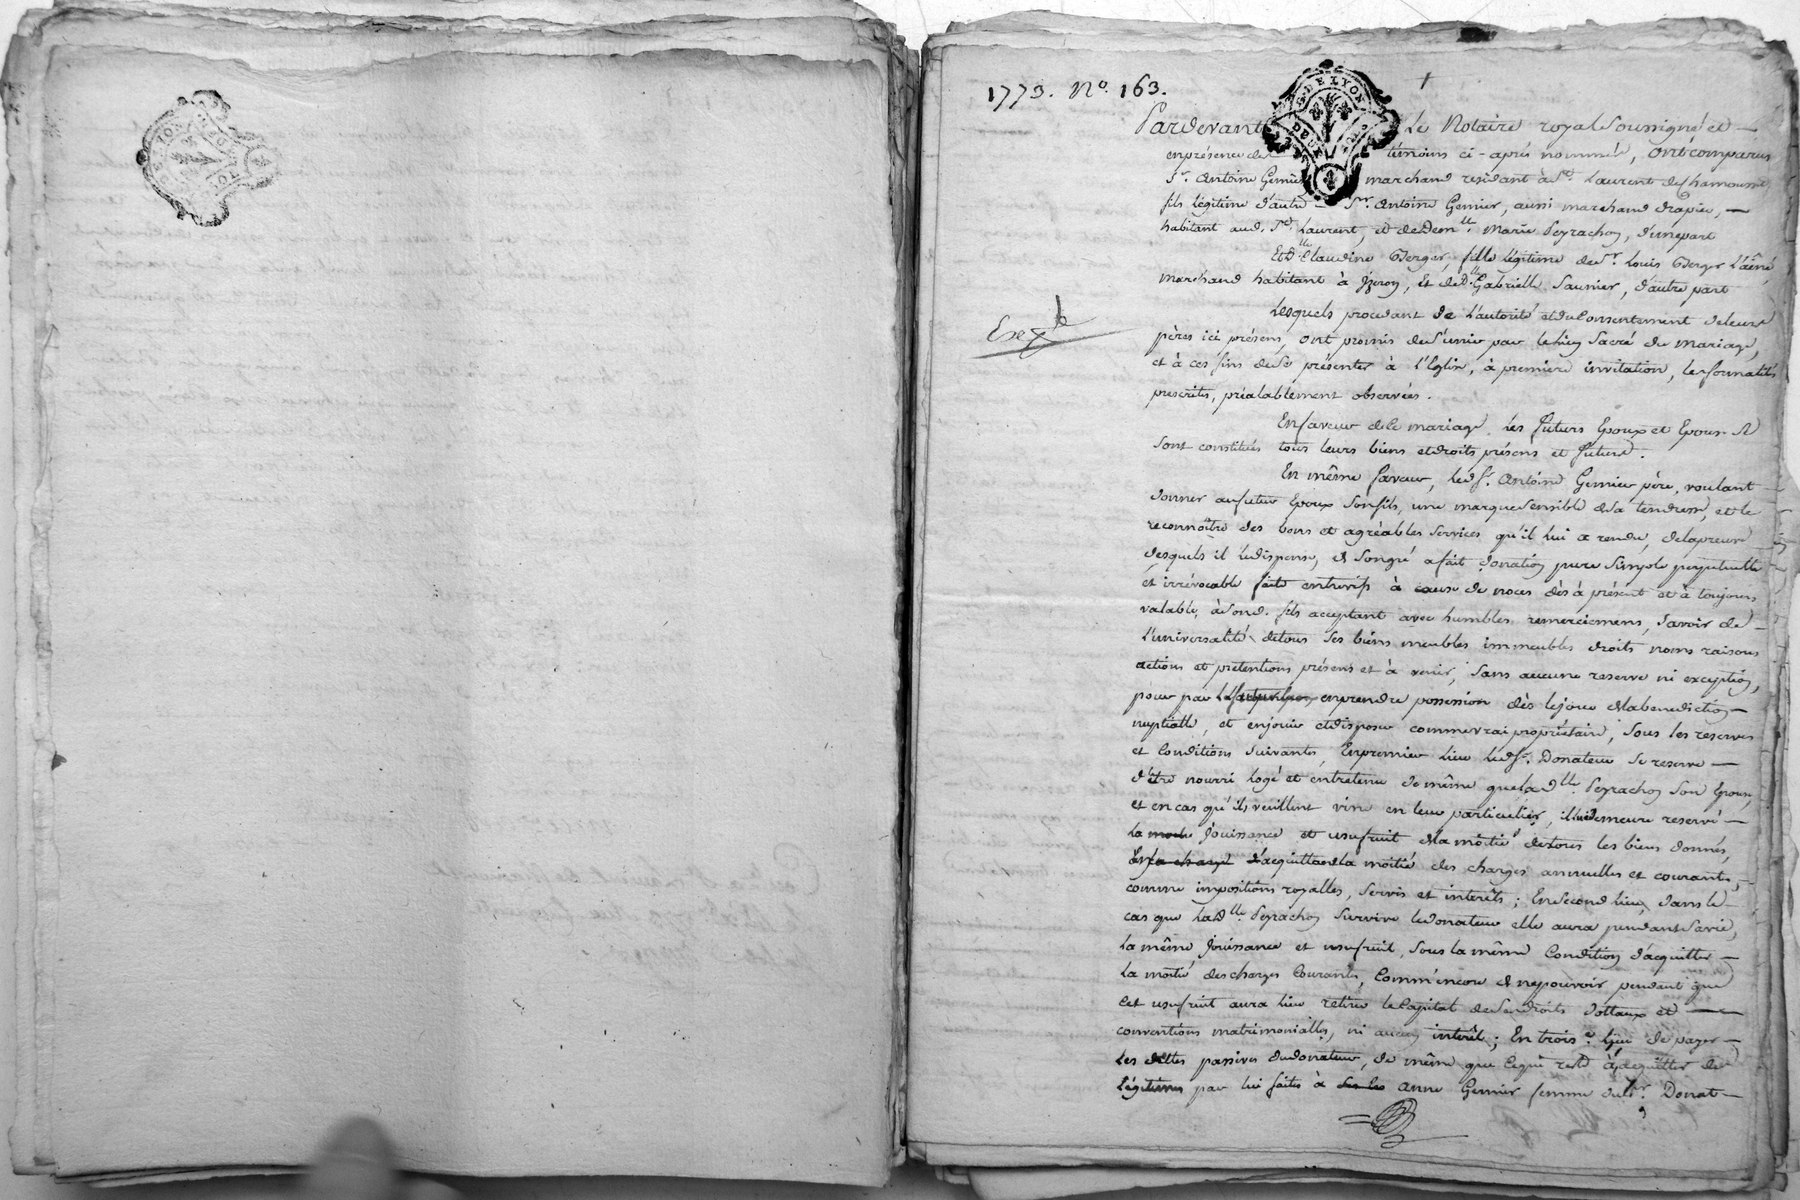 1773. No. 163.
G. DE LYON
DEUX SOLS
Pardevant Le Notaire royal Soussigné et
en présence des témoins ci-après nommés, ont comparus
Sr. Antoine Gemier marchand residant à St. Laurent de Chamousset,
fils légitime d'autre Sr. Antoine Gemier, aussi marchand drapier,
habitant aud. St. Laurent, et de Demlle Marie Peyrachon, d'une part
Et Dlle Claudine Berger, fille légitime de Sr. Louis Berger L'aîné,
marchand habitant à Izeron, et de Dlle Gabrielle Saunier, d'autre part
Lesquels procedant de L'autorité et du Consentement de leurs
Exe
pères ici présens, ont promis de S'unir par le lien Sacré du mariage,
et à ces fins de Se présenter à l'Eglise, à première invitation, les formalités
prescrites, préalablement observées.
En faveur de le mariage, Les futurs Epoux et Epouse Se
Sont constitués tous leurs biens et droits présens et futurs.
En même faveur, led. Sr. Antoine Gemier père, voulant
donner au futur Epoux Son fils, une marque Sensible de Sa tendresse, et le
reconnoître des bons et agréables Services qu'il lui a rendu, de la preuve
desquels il le dispense, de Son gré a fait donation pure Simple perpetuelle
et irrévocable faite entrevifs à cause de noces dès à présent et à toujours
valable, à Sond. fils acceptant avec humbles remerciemens, Savoir de
L'universalité de tous Ses biens meubles immeubles droits noms raisons
actions et pretentions présens et à venir, Sans aucune reserve ni exception,
pour par en prendre possession dès le jour de la benediction
nuptialle, et en jouir et disposer comme vrai propriétaire, Sous les reserves
et Conditions Suivantes, En premier lieu led. Sr. Donateur Se reserve
d'être nourri logé et entretenu de même que lad. Dlle Peyrachon Son Epouse,
et en cas qu'ils veuillent vivre en leur particulier, il lui demeure reservé
La jouissance et usufruit de la moitié de tous les biens donnés,
d'acquitter la moitié des charges annuelles et courantes,
comme impositions royalles, Servis et interêts; En Second lieu, dans le
cas que la Dlle Peyrachon Survive le donateur elle aura pendant Sa vie,
La même jouissance et usufruit, Sous la même Condition d'acquitter
La moitié des charges Courantes, Comm'encore de ne pouvoir pendant que
Cet usufruit aura lieu retirer le Capital de Ses droits dottaux et
conventions matrimonialles, ni aucun interêt; En troise. lieu de payer
Les dettes passives du donateur, de même que ce qui reste à acquitter des
Légitimes par lui faites à Anne Gemier femme du Sr. Donat